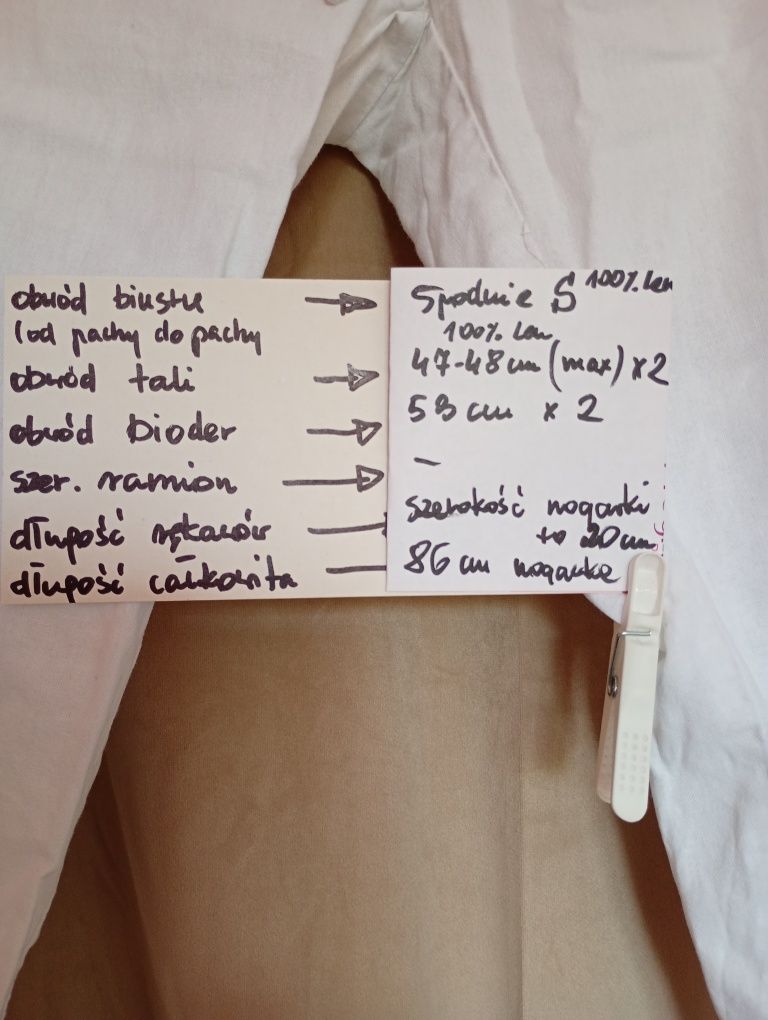 obwód biustu
(od pachy do pachy
obwód tali
obwód bioder
szer. ramion
długość rękawów
długość całkowita
Spodnie S 100% len
100% len
47-48 cm (max) x2
53 cm x 2
—
szerokość nogawki
to 20 cm
86 cm nogawka